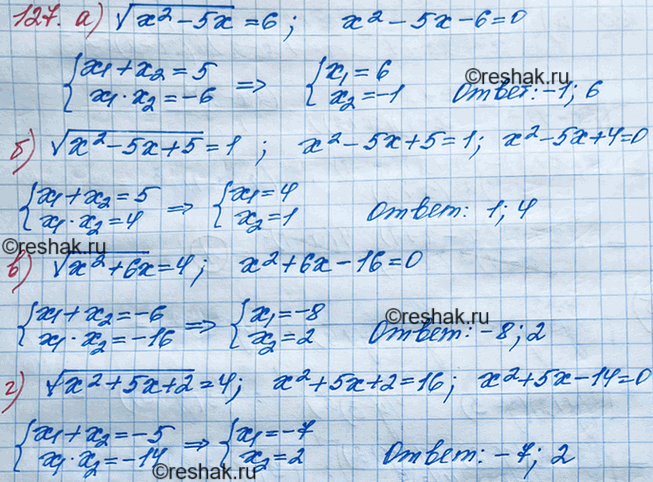 127. а) √x²-5x = 6; x²-5x-6=0
{x₁+x₂=5 x₁·x₂=-6 => {x₁=6 x₂=-1 Ответ: -1; 6
©reshak.ru
б) √x²-5x+5 = 1; x²-5x+5=1; x²-5x+4=0
{x₁+x₂=5 x₁·x₂=4 => {x₁=4 x₂=1 Ответ: 1; 4
©reshak.ru
в) √x²+6x = 4; x²+6x-16=0
{x₁+x₂=-6 x₁·x₂=-16 => {x₁=-8 x₂=2 Ответ: -8; 2
©reshak.ru
г) √x²+5x+2 = 4; x²+5x+2=16; x²+5x-14=0
{x₁+x₂=-5 x₁·x₂=-14 => {x₁=-7 x₂=2 Ответ: -7; 2
©reshak.ru